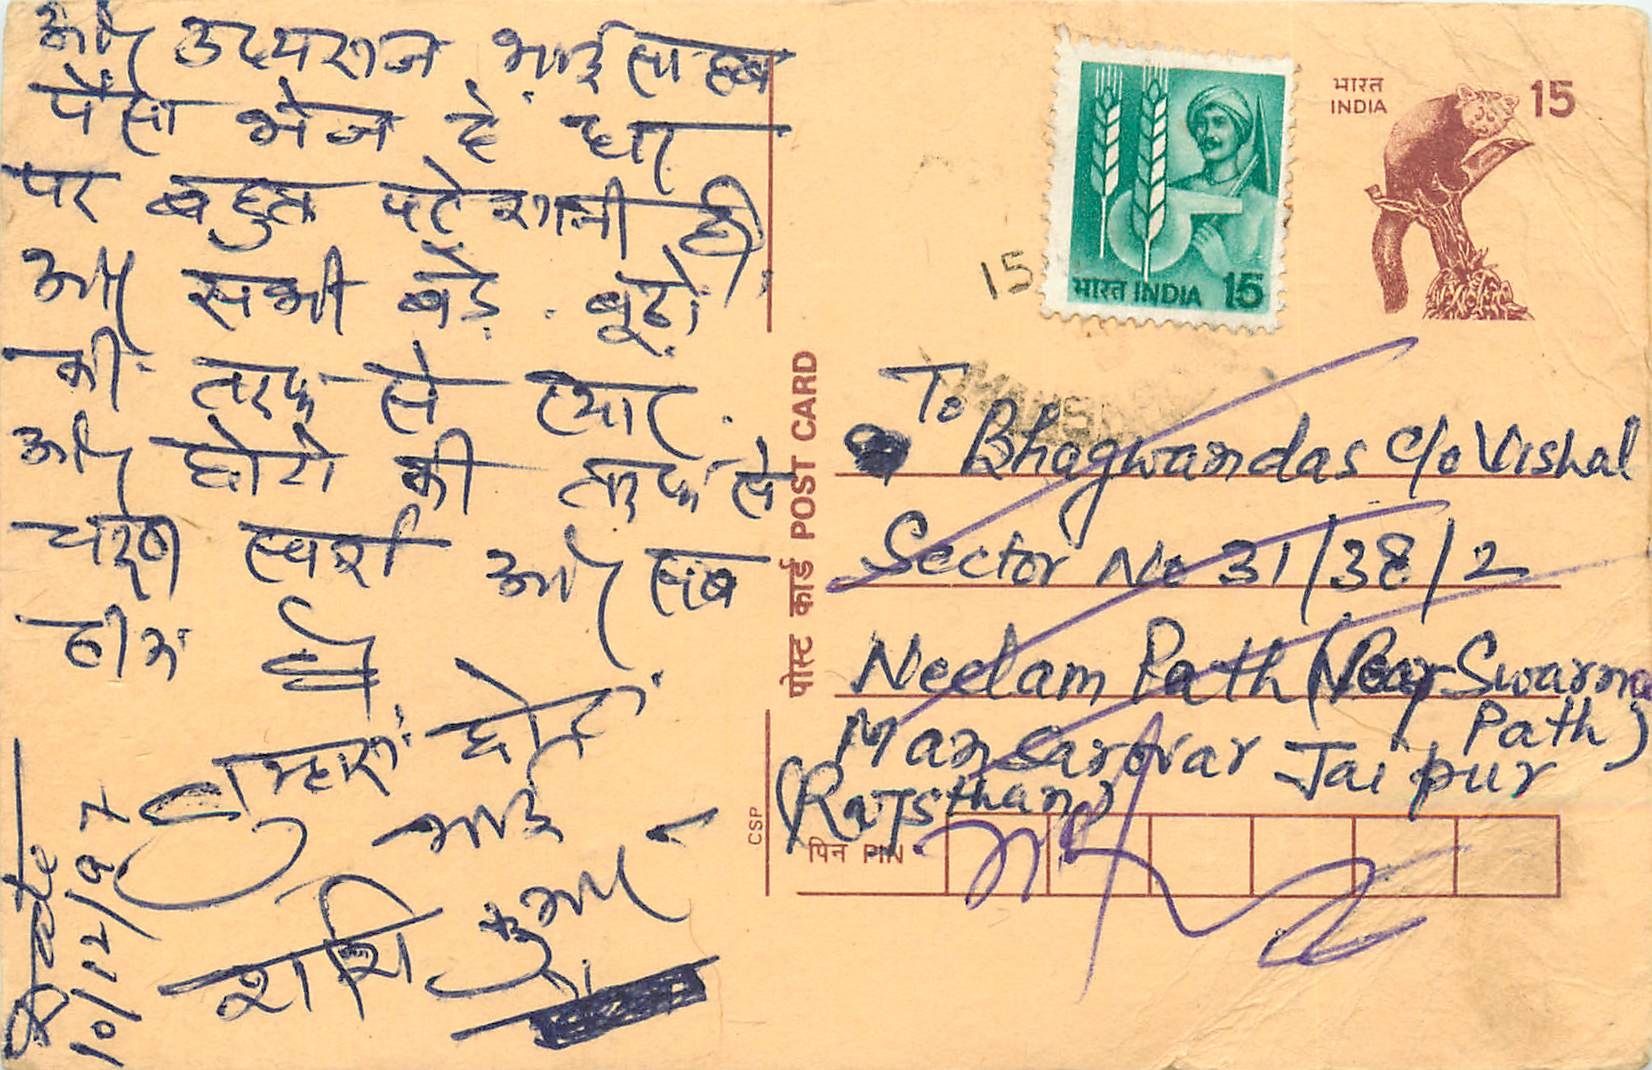 और उदयराज भाई साहब
पैसा भेज दे घर
पर बहुत परेशानी है
और सभी बड़े बूढो
की तरफ से प्यार
और छोटो की तरफ से
चरण स्पर्श और सब
ठीक है
तुम्हारा छोटा
भाई
शशि कुमार
Date
10/12/97
भारत INDIA 15
भारत
INDIA
15
15
पोस्ट कार्ड POST CARD
CSP
To
Bhagwandas c/o Vishal
Sector No 31/38/2
Neelam Path (Near Swarna
Path)
Mansarovar Jaipur
(Rajsthan)
पिन PIN